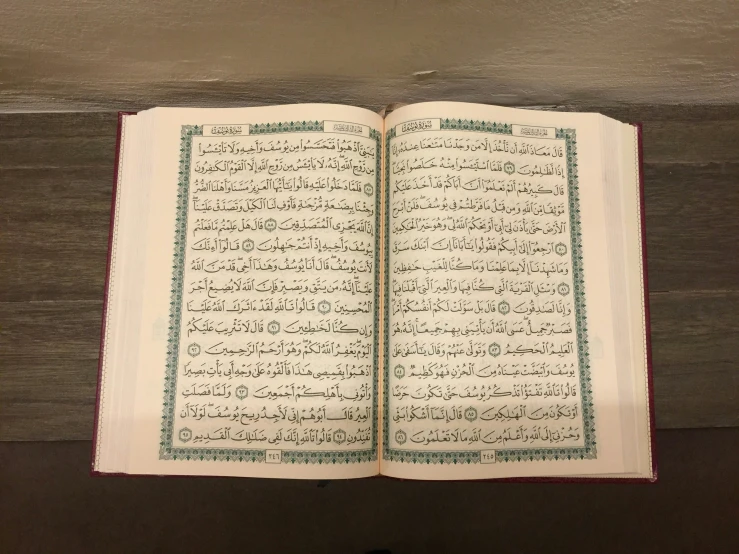 الجزء الثالث عشر
سورة يوسف
قَالَ مَعَاذَ ٱللَّهِ أَن نَّأْخُذَ إِلَّا مَن وَجَدْنَا مَتَـٰعَنَا عِندَهُۥٓ إِنَّآ
إِذًا لَّظَـٰلِمُونَ ٧٩ فَلَمَّا ٱسْتَيْـَٔسُوا۟ مِنْهُ خَلَصُوا۟ نَجِيًّا
قَالَ كَبِيرُهُمْ أَلَمْ تَعْلَمُوٓا۟ أَنَّ أَبَاكُمْ قَدْ أَخَذَ عَلَيْكُم
مَّوْثِقًا مِّنَ ٱللَّهِ وَمِن قَبْلُ مَا فَرَّطتُمْ فِى يُوسُفَ فَلَنْ أَبْرَحَ
ٱلْأَرْضَ حَتَّىٰ يَأْذَنَ لِىٓ أَبِىٓ أَوْ يَحْكُمَ ٱللَّهُ لِى وَهُوَ خَيْرُ ٱلْحَـٰكِمِينَ
٨٠ ٱرْجِعُوٓا۟ إِلَىٰٓ أَبِيكُمْ فَقُولُوا۟ يَـٰٓأَبَانَآ إِنَّ ٱبْنَكَ سَرَقَ
وَمَا شَهِدْنَآ إِلَّا بِمَا عَلِمْنَا وَمَا كُنَّا لِلْغَيْبِ حَـٰفِظِينَ
٨١ وَسْـَٔلِ ٱلْقَرْيَةَ ٱلَّتِى كُنَّا فِيهَا وَٱلْعِيرَ ٱلَّتِىٓ أَقْبَلْنَا فِيهَا
وَإِنَّا لَصَـٰدِقُونَ ٨٢ قَالَ بَلْ سَوَّلَتْ لَكُمْ أَنفُسُكُمْ أَمْرًا
فَصَبْرٌ جَمِيلٌ عَسَى ٱللَّهُ أَن يَأْتِيَنِى بِهِمْ جَمِيعًا إِنَّهُۥ هُوَ
ٱلْعَلِيمُ ٱلْحَكِيمُ ٨٣ وَتَوَلَّىٰ عَنْهُمْ وَقَالَ يَـٰٓأَسَفَىٰ عَلَىٰ
يُوسُفَ وَٱبْيَضَّتْ عَيْنَاهُ مِنَ ٱلْحُزْنِ فَهُوَ كَظِيمٌ ٨٤
قَالُوا۟ تَٱللَّهِ تَفْتَؤُا۟ تَذْكُرُ يُوسُفَ حَتَّىٰ تَكُونَ حَرَضًا
أَوْ تَكُونَ مِنَ ٱلْهَـٰلِكِينَ ٨٥ قَالَ إِنَّمَآ أَشْكُوا۟ بَثِّى
وَحُزْنِىٓ إِلَى ٱللَّهِ وَأَعْلَمُ مِنَ ٱللَّهِ مَا لَا تَعْلَمُونَ ٨٦
٢٤٥
الجزء الثالث عشر
سورة يوسف
يَـٰبَنِىَّ ٱذْهَبُوا۟ فَتَحَسَّسُوا۟ مِن يُوسُفَ وَأَخِيهِ وَلَا تَا۟يْـَٔسُوا۟
مِن رَّوْحِ ٱللَّهِ إِنَّهُۥ لَا يَا۟يْـَٔسُ مِن رَّوْحِ ٱللَّهِ إِلَّا ٱلْقَوْمُ ٱلْكَـٰفِرُونَ
٨٧ فَلَمَّا دَخَلُوا۟ عَلَيْهِ قَالُوا۟ يَـٰٓأَيُّهَا ٱلْعَزِيزُ مَسَّنَا وَأَهْلَنَا ٱلضُّرُّ
وَجِئْنَا بِبِضَـٰعَةٍ مُّزْجَىٰةٍ فَأَوْفِ لَنَا ٱلْكَيْلَ وَتَصَدَّقْ عَلَيْنَآ
إِنَّ ٱللَّهَ يَجْزِى ٱلْمُتَصَدِّقِينَ ٨٨ قَالَ هَلْ عَلِمْتُم مَّا فَعَلْتُم
بِيُوسُفَ وَأَخِيهِ إِذْ أَنتُمْ جَـٰهِلُونَ ٨٩ قَالُوٓا۟ أَءِنَّكَ
لَأَنتَ يُوسُفُ قَالَ أَنَا۠ يُوسُفُ وَهَـٰذَآ أَخِى قَدْ مَنَّ ٱللَّهُ
عَلَيْنَآ إِنَّهُۥ مَن يَتَّقِ وَيَصْبِرْ فَإِنَّ ٱللَّهَ لَا يُضِيعُ أَجْرَ
ٱلْمُحْسِنِينَ ٩٠ قَالُوا۟ تَٱللَّهِ لَقَدْ ءَاثَرَكَ ٱللَّهُ عَلَيْنَا
وَإِن كُنَّا لَخَـٰطِـِٔينَ ٩١ قَالَ لَا تَثْرِيبَ عَلَيْكُمُ
ٱلْيَوْمَ يَغْفِرُ ٱللَّهُ لَكُمْ وَهُوَ أَرْحَمُ ٱلرَّٰحِمِينَ ٩٢
ٱذْهَبُوا۟ بِقَمِيصِى هَـٰذَا فَأَلْقُوهُ عَلَىٰ وَجْهِ أَبِى يَأْتِ بَصِيرًا
وَأْتُونِى بِأَهْلِكُمْ أَجْمَعِينَ ٩٣ وَلَمَّا فَصَلَتِ
ٱلْعِيرُ قَالَ أَبُوهُمْ إِنِّى لَأَجِدُ رِيحَ يُوسُفَ لَوْلَآ أَن
تُفَنِّدُونِ ٩٤ قَالُوا۟ تَٱللَّهِ إِنَّكَ لَفِى ضَلَـٰلِكَ ٱلْقَدِيمِ ٩٥
٢٤٦